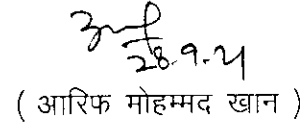 28.9.21
( आरिफ मोहम्मद खान )